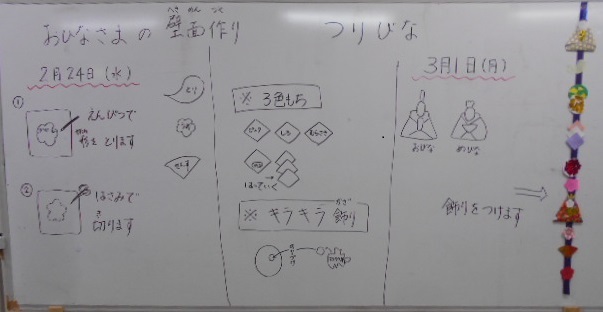 おひなさまの壁面作り
へきめんづく
つりびな
2月24日(水)
①
えんぴつで
形をとります
②
はさみで
切ります
き
とり
せんす
※ 3色もち
ピンク
しろ
はっていく
※ キラキラ飾り
かざ
3月1日(月)
おびな
めびな
飾りをつけます